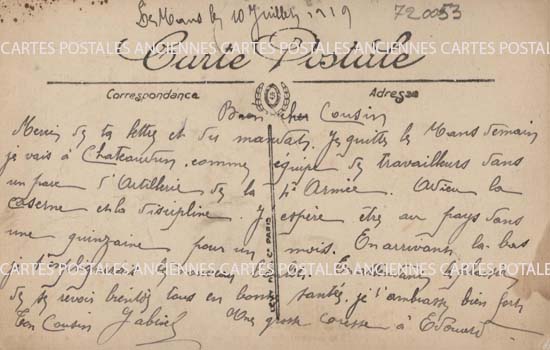 Le Mans le 10 Juillet 1919
720053
CARTES POSTALES ANCIENNES
Carte Postale
Correspondance
Adresse
Bien cher Cousin
Merci de ta lettre et du mandat. Je quitte le Mans demain
je vais à Chateaudun, comme équipe de travailleurs dans
un parc d'Artillerie de la 4e Armée. Adieu la
caserne et la discipline. J'espère être au pays dans
une quinzaine pour un mois. En arrivant là-bas
En attendant le plaisir
de se revoir bientôt tous en bonne santé, je t'embrasse bien fort
Ton Cousin Gabriel Une grosse caresse à Edouard.